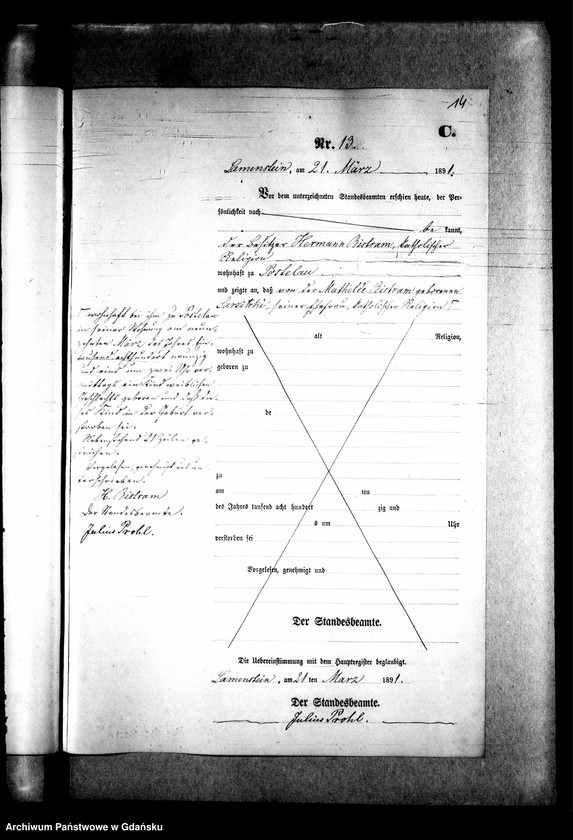 14
C.
Nr. 13.
Lamenstein, am 21. März 1891.
Vor dem unterzeichneten Standesbeamten erschien heute, der Per-
sönlichkeit nach
be kannt,
der Besitzer Hermann Bistram, katholischer
Religion
wohnhaft zu Postelau
und zeigte an, daß von der Mathilde Bistram geborenen
seiner Ehefrau, katholischer Religion
wohnhaft bei ihm zu Postelau
in seiner Wohnung am neun-
zehnten März des Jahres Ein-
tausend achthundert neunzig
und eins um zwei Uhr vor-
mittags ein Kind weiblichen
Geschlechts geboren und daß die-
ses Kind in der Geburt ver-
storben sei.
Nebenstehend 21 Zeilen ge-
strichen.
Vorgelesen, genehmigt und un-
terschrieben.
H. Bistram
Der Standesbeamte.
Julius Prohl.
alt Religion,
wohnhaft zu
geboren zu
de
zu
am ten
des Jahres tausend acht hundert zig und
s um Uhr
verstorben sei
Vorgelesen, genehmigt und
Der Standesbeamte.
Die Uebereinstimmung mit dem Hauptregister beglaubigt.
Lamenstein, am 21 ten März 1891.
Der Standesbeamte.
Julius Prohl.
Archiwum Państwowe w Gdańsku